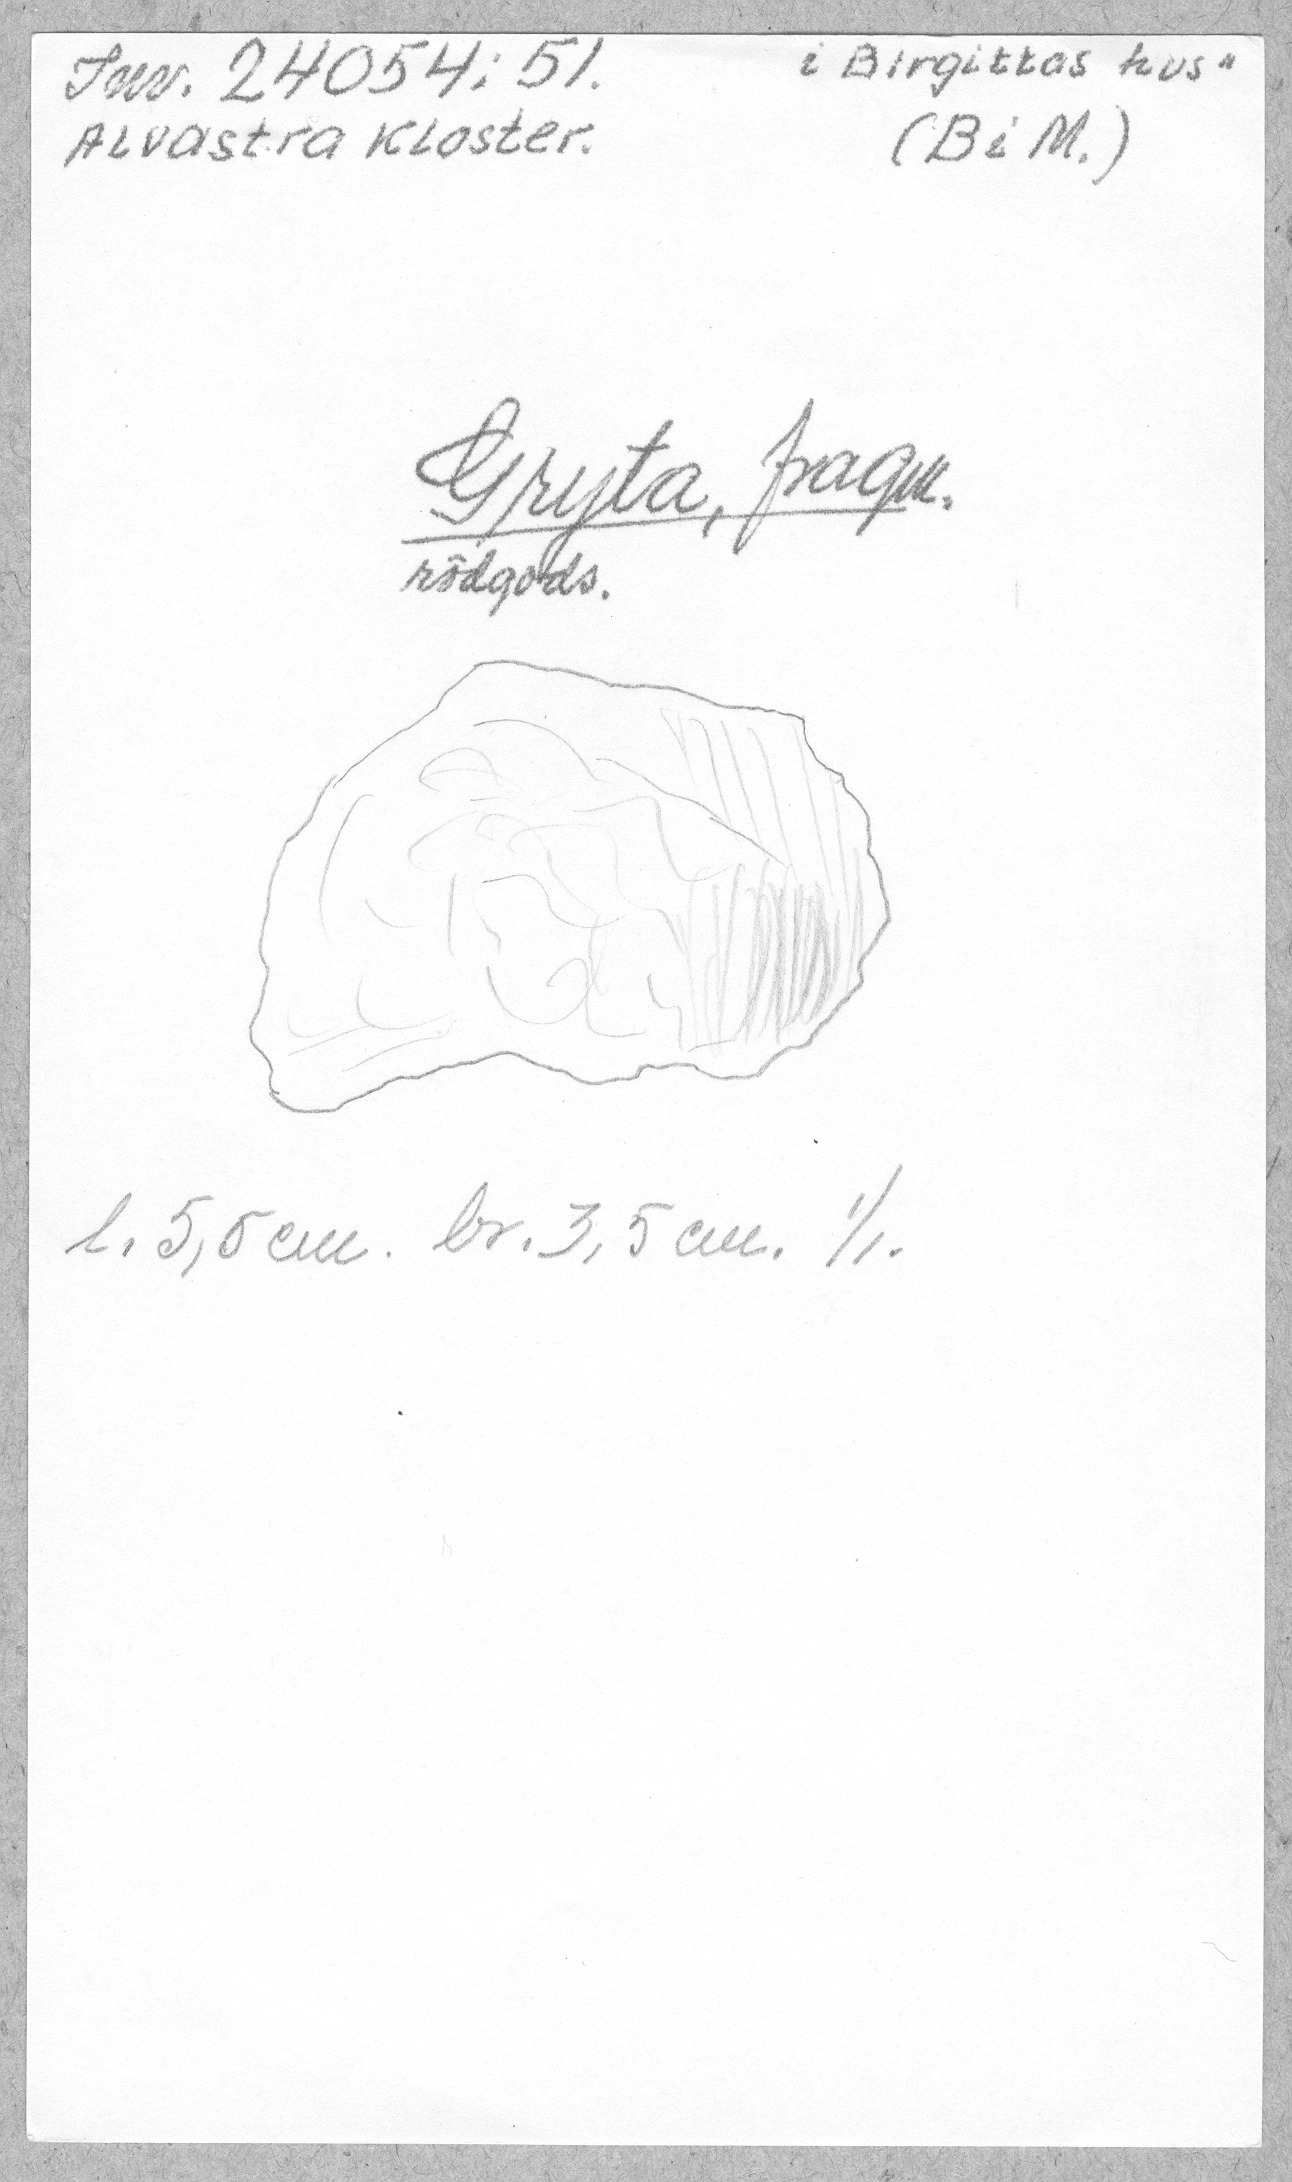 Inv. 24054:51.
Alvastra Kloster.
i Birgittas hus"
(B i M.)
Gryta, fragm.
rödgods.
l. 5,5 cm. br. 3,5 cm. 1/1.